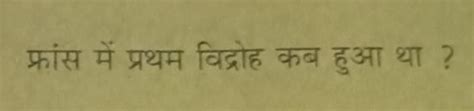 फ्रांस में प्रथम विद्रोह कब हुआ था ?